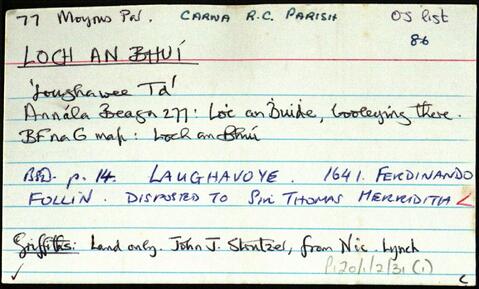 77 Moyrus Par. CARNA R.C. PARISH OS list
86
LOCH AN BHUÍ
'Loughawee Td'
Annála Beaga 277: Loċ an Ḃuide, booleying there.
BF na G map: Loch an Bhuí
BSD. p. 14. LAUGHAVOYE. 1641. FERDINANDO
FOLLIN. DISPOSED TO Sir THOMAS MERRIDITH
Griffiths: Land only. John J. Shntzer, from Nic. Lynch
P120/1/2/31 (1)